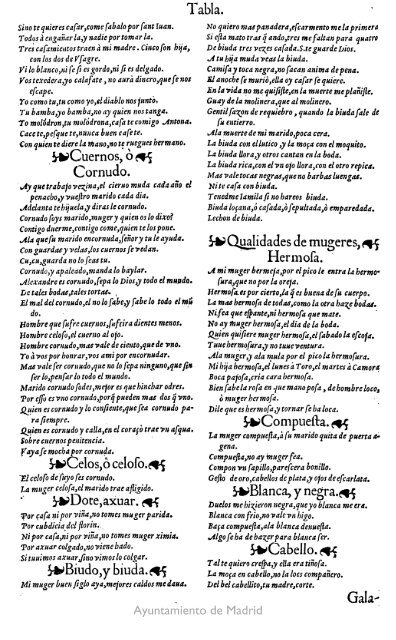 Tabla.
Sino te quieres casar, come sabalo por sant Iuan.
Todos à engañar la, y nadie por tomar la.
Tres casamientos traen à mi madre. Cinco son hija,
con los dos de Vsagre.
Vi lo blanco, ni se si es gordo, ni si es delgado.
Vos texedera, yo calafate, no aurà dinero, que se nos
escape.
Yo como tu, tu como yo, el diablo nos junto.
Tu bamba, yo bamba, no ay quien nos tanga.
Tu molòdron, tu molòdrona, casa te comigo Antona.
Cace te, pesque te, nunca buen casete.
Con quien te diere la mano, no te rasgues hermano.
Cuernos, ò
Cornudo.
Ay que trabajo vezina, el cieruo muda cada año el
penacho, y vuestro marido cada dia.
Adelanta te hijuela, y diras le cornudo.
Cornudo soys marido, muger y quien os lo dixo?
Contigo duerme, contigo come, quien te los pone.
Ala que su marido encornuda, señor y tu le ayuda.
Con guardas y velas, los cuernos se vedan.
Cu, cu, guarda no lo seas tu.
Cornudo, y apaleado, manda lo baylar.
Alexandre es cornudo, sepa lo Dios, y todo el mundo.
De tales bodas, tales tortas.
El mal del cornudo, el no lo sabe, y sabe lo todo el mũ
do.
Hombre que sufre cuernos, sufrira dientes menos.
Hombre celoso, el cuerno al ojo.
Hombre cornudo, mas vale de ciento, que de vno.
Yo à vos por honrar, vos ami por encornudar.
Mas vale ser cornudo, que no lo sepa ninguno, que sin
ser lo, pensar lo todo el mundo.
Marido cornudo sedes, mejor es que hinchar odres.
Por esso es vno cornudo, porq̃ pueden mas dos q̃ vno.
Quien es cornudo y lo consiente, que sea cornudo pa-
ra siempre.
Quien es cornudo y calla, en el coraçõ trae vn asqua.
Sobre cuernos penitencia.
Vaya se mocha por cornuda.
Celos, ò celoso.
El celoso de suyo ses cornudo.
La muger celosa, el marido trae asligido.
Dote, axuar.
Por casa ni por viña, no tomes muger parida.
Por cubdicia del florin.
Ni por casa, ni por viña, no tomes muger ximia.
Por axuar colgado, no viene hado.
Si tuuimos axuar, sino vimos lo colgar.
Biudo, y biuda.
Mi muger buen siglo aya, mejores caldos me daua.
No quiero mas panadera, escarmento me la primera
Si esta mato tras q̃ ando, tres me faltan para quatro
De biuda tres vezes casada. S. te guarde Dios.
A tu hija muda veas la biuda.
Camisa y toca negra, no sacan anima de pena.
El anoche se murio, ella oy casar se quiere.
En la vida no me quisiste, en la muerte me plañiste.
Guay de la molinera, que al molinero.
Gentil sazon de requiebro, quando la biuda sale de
su entierro.
Ala muerte de mi marido, poca cera.
La biuda con el lutico, y la moça con el moquito.
La biuda llora, y otros cantan en la boda.
La biuda rica, con el vn ojo llora, con el otro repica.
Mas vale tocas negras, que no barbas luengas.
Ni te casa con biuda.
Tened me la mula si no hareos biuda.
Biuda loçana, ò casada, ò sepultada, ò emparedada.
Lechon de biuda.
Qualidades de mugeres,
Hermosa.
A mi muger bermeja, por el pico le entra la hermo-
sura, que no por la oreja.
Hermosa es por cierto, la q̃ es buena de su cuerpo.
La mas hermosa de todas, como la otra haze bodas.
Ni fea que espante, ni hermosa que mate.
No ay muger hermosa, el dia de la boda.
Quien quisiere muger hermosa, el sabado la escoja.
Tuue hermosura, y no tuue ventura.
Ala muger, y ala mula por el pico la hermosura.
Mi hija hermosa, el lunes à Toro, el martes à Çamora
Boca pajosa, cria cara hermosa.
Bien sabe la rosa en que mano posa, de hombre loco,
ò muger hermosa.
Dile que es hermosa, y tornar se ha loca.
Compuesta.
La muger compuesta, à su marido quita de puerta a-
gena.
Compuesta, no ay muger fea.
Compon vn sapillo, parescera bonillo.
Gesto de oro, cabellos de plata, y ojos de escarlata.
Blanca, y negra.
Duelos me hizieron negra, que yo blanca me era.
Blanca con frio, no vale vn higo.
Baça compuesta, ala blanca denuesta.
Algo se ha de hazer para blanca ser.
Cabello.
Tal te quiero crespa, y ella era tiñosa.
La moça en cabello, no la loes compañero.
Del bel cabellito, su madre, corte.
Gala-
Ayuntamiento de Madrid